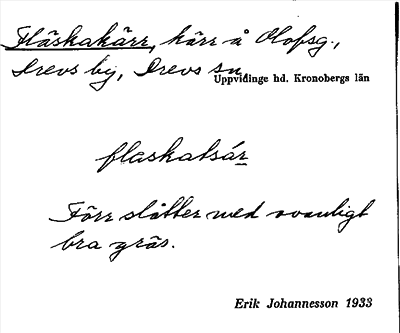 Fläskakärr, kärr å Olofsg.,
Drevs by, Drevs sn,
Uppvidinge hd. Kronobergs län
flaskatsár
Förr slåtter med ovanligt
bra gräs.
Erik Johannesson 1933